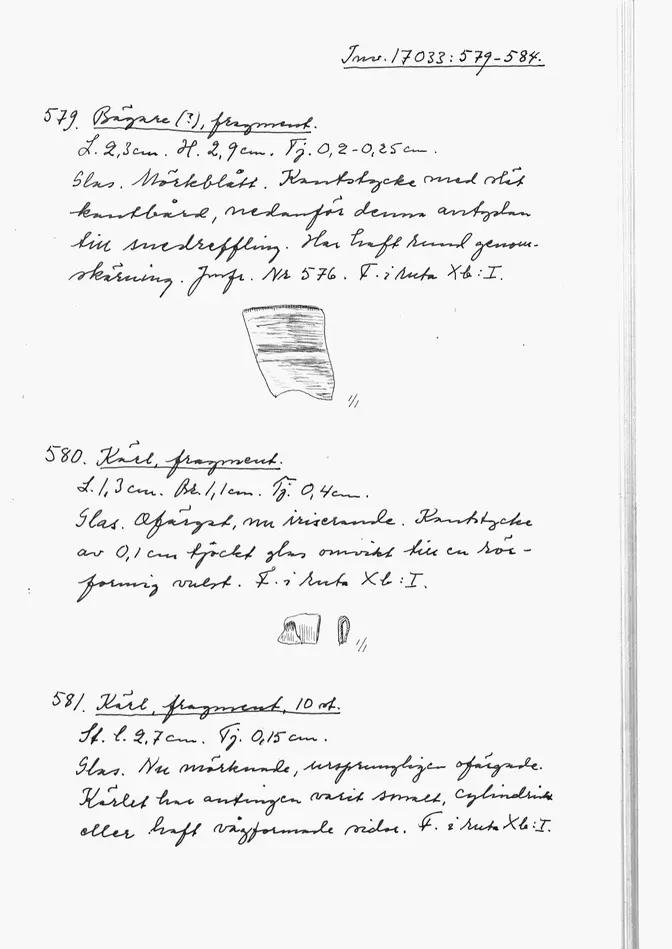 Inv. 17033:579-584.
579. Bägare (?), fragment.
L. 2,3cm. H. 2,9cm. Tj. 0,2-0,25cm.
Glas. Mörkblått. Kantstycke med slät
kantbård, nedanför denna antydan
till snedreffling. Har haft rund genom-
skärning. Jmfr. Nr 576. F. i ruta Xb:I.
1/1
580. Kärl, fragment.
L. 1,3cm. Br. 1,1cm. Tj. 0,4cm.
Glas. Ofärgat, nu iriserande. Kantstycke
av 0,1cm tjockt glas omvikt till en rör-
formig vulst. F. i ruta Xb:I.
1/1
581. Kärl, fragment, 10 st.
St. l. 2,7cm. Tj. 0,15cm.
Glas. Nu mörknade, ursprungligen ofärgade.
Kärlet har antingen varit smalt, cylindriskt
eller haft vågformade sidor. F. i ruta Xb:I.